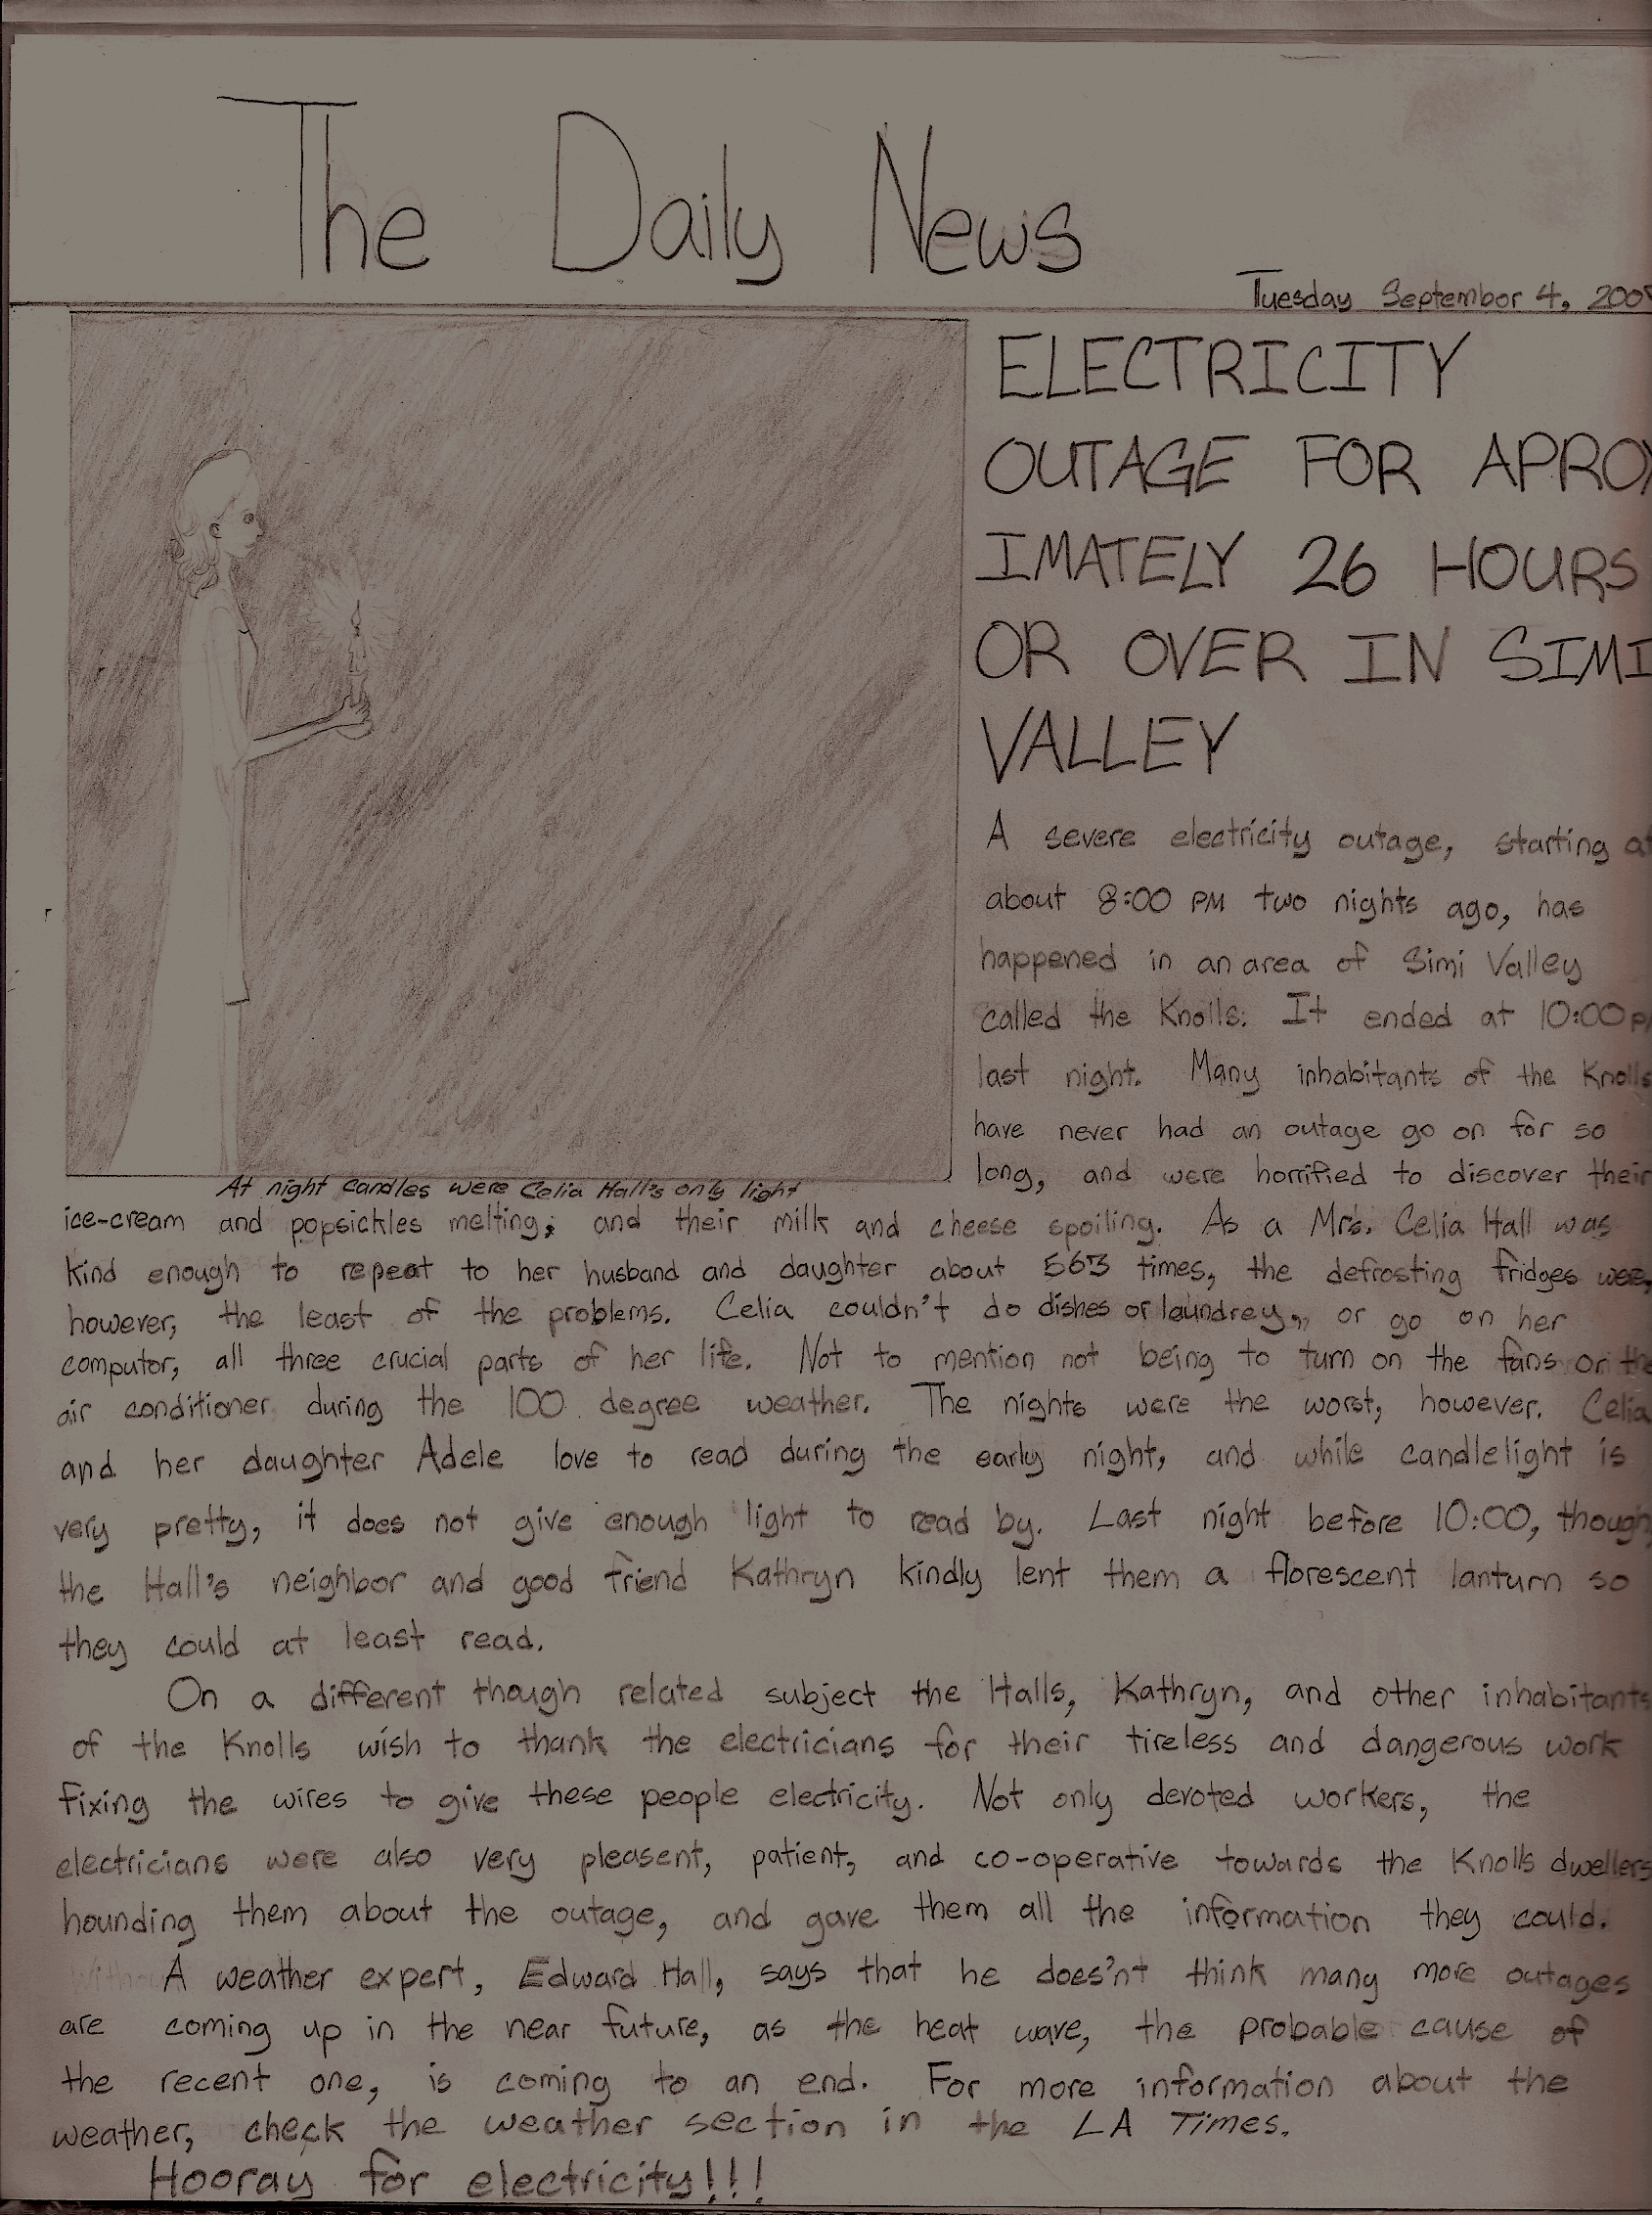 The Daily News
Tuesday September 4, 200
ELECTRICITY
OUTAGE FOR APROX
IMATELY 26 HOURS
OR OVER IN SIMI
VALLEY
A severe electricity outage, starting at
about 8:00 PM two nights ago, has
happened in an area of Simi Valley
called the Knolls. It ended at 10:00 p
last night. Many inhabitants of the Knolls
have never had an outage go on for so
long, and were horrified to discover their
At night candles were Celia Hall's only light
ice-cream and popsickles melting, and their milk and cheese spoiling. As a Mrs. Celia Hall was
kind enough to repeat to her husband and daughter about 563 times, the defrosting fridges were,
however, the least of the problems. Celia couldn't do dishes or laundrey, or go on her
computor, all three crucial parts of her life. Not to mention not being to turn on the fans or the
air conditioner during the 100 degree weather. The nights were the worst, however. Celia
and her daughter Adele love to read during the early night, and while candlelight is
very pretty, it does not give enough light to read by. Last night before 10:00, though,
the Hall's neighbor and good friend Kathryn kindly lent them a florescent lanturn so
they could at least read.
On a different though related subject the Halls, Kathryn, and other inhabitants
of the Knolls wish to thank the electricians for their tireless and dangerous work
fixing the wires to give these people electricity. Not only devoted workers, the
electricians were also very pleasent, patient, and co-operative towards the Knolls dwellers
hounding them about the outage, and gave them all the information they could.
A weather expert, Edward Hall, says that he does'nt think many more outages
are coming up in the near future, as the heat wave, the probable cause of
the recent one, is coming to an end. For more information about the
weather, check the weather section in the LA Times.
Hooray for electricity!!!